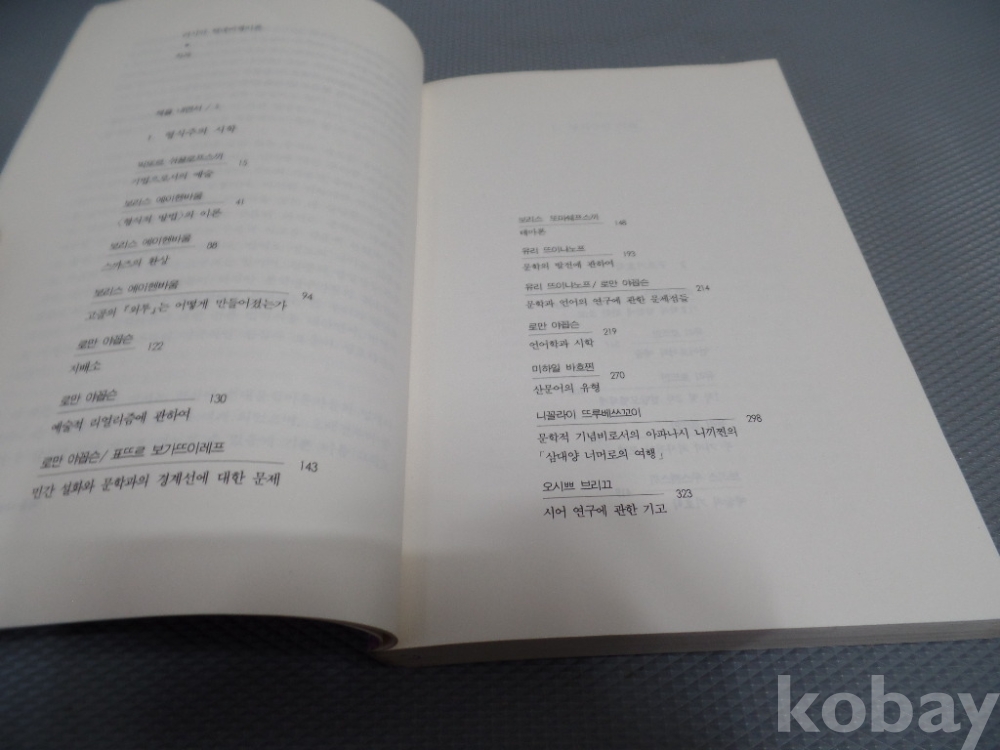 차례
책을 내면서 / 5
1. 형식주의 시학
빅또르 쉬클로프스끼
기법으로서의 예술 13
보리스 에이헨바움
〈형식적 방법〉의 이론 41
보리스 에이헨바움
스까즈의 환상 88
보리스 에이헨바움
고골의 『외투』는 어떻게 만들어졌는가 94
로만 야콥슨
지배소 122
로만 야콥슨
예술적 리얼리즘에 관하여 130
로만 야콥슨/ 표뜨르 보가뜨이레프
민간 설화와 문학과의 경계선에 대한 문제 143
보리스 또마쉐프스끼
테마론 148
유리 뜨이냐노프
문학의 발전에 관하여 193
유리 뜨이냐노프/ 로만 야콥슨
문학과 언어의 연구에 관한 문제성들 214
로만 야콥슨
언어학과 시학 219
미하일 바흐찐
산문어의 유형 270
니꼴라이 뜨루베쓰꼬이
문학적 기념비로서의 아파나시 니끼찐의
「삼대양 너머로의 여행」 298
오시쁘 브리끄
시어 연구에 관한 기고 323
kobay